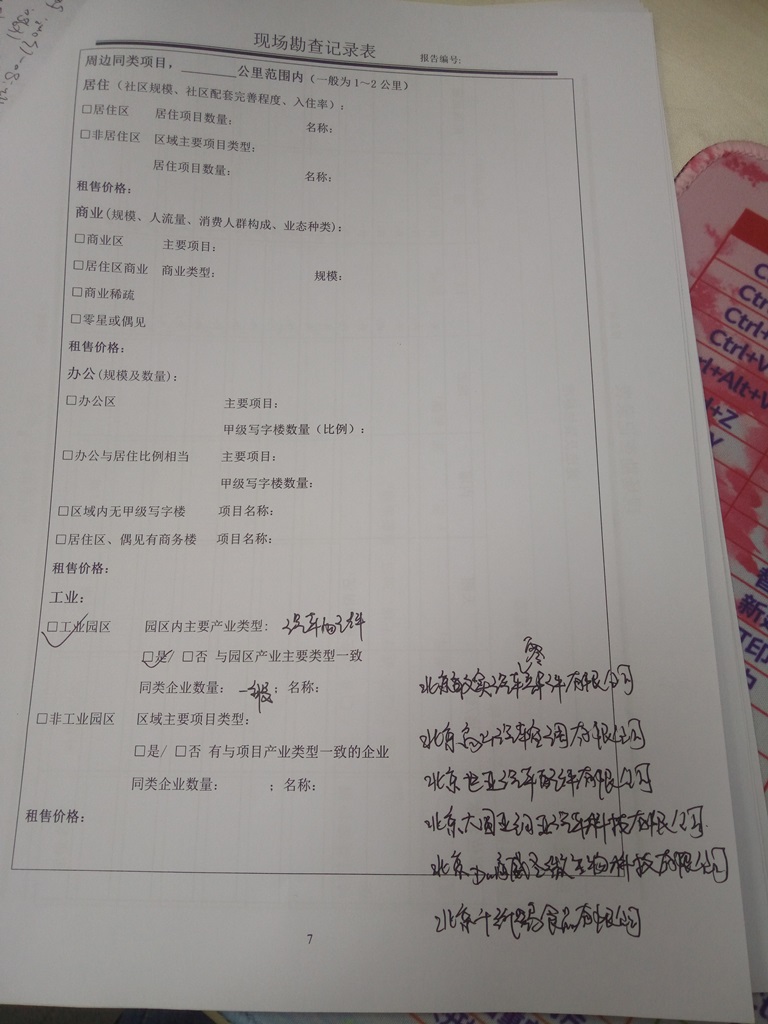 现场勘查记录表
报告编号:
周边同类项目，______公里范围内（一般为1～2公里）
居住（社区规模、社区配套完善程度、入住率）：
□居住区 居住项目数量： 名称：
□非居住区 区域主要项目类型：
居住项目数量： 名称：
租售价格：
商业(规模、人流量、消费人群构成、业态种类)：
□商业区 主要项目：
□居住区商业 商业类型： 规模：
□商业稀疏
□零星或偶见
租售价格：
办公(规模及数量)：
□办公区 主要项目：
甲级写字楼数量（比例）：
□办公与居住比例相当 主要项目：
甲级写字楼数量：
□区域内无甲级写字楼 项目名称：
□居住区、偶见有商务楼 项目名称：
租售价格：
工业：
□工业园区 园区内主要产业类型：汽车配件
□是/ □否 与园区产业主要类型一致
同类企业数量：一般；名称：
北京 汽车零 件有限公司
□非工业园区 区域主要项目类型：
北京 汽车空调有限公司
□是/ □否 有与项目产业类型一致的企业
北京 亚汽车配件有限公司
同类企业数量： ；名称：
租售价格：
北京大 亚汽车科技有限公司
北京 生物科技有限公司
北京 食品有限公司
7
Ctrl+V
Ctrl+Alt+V